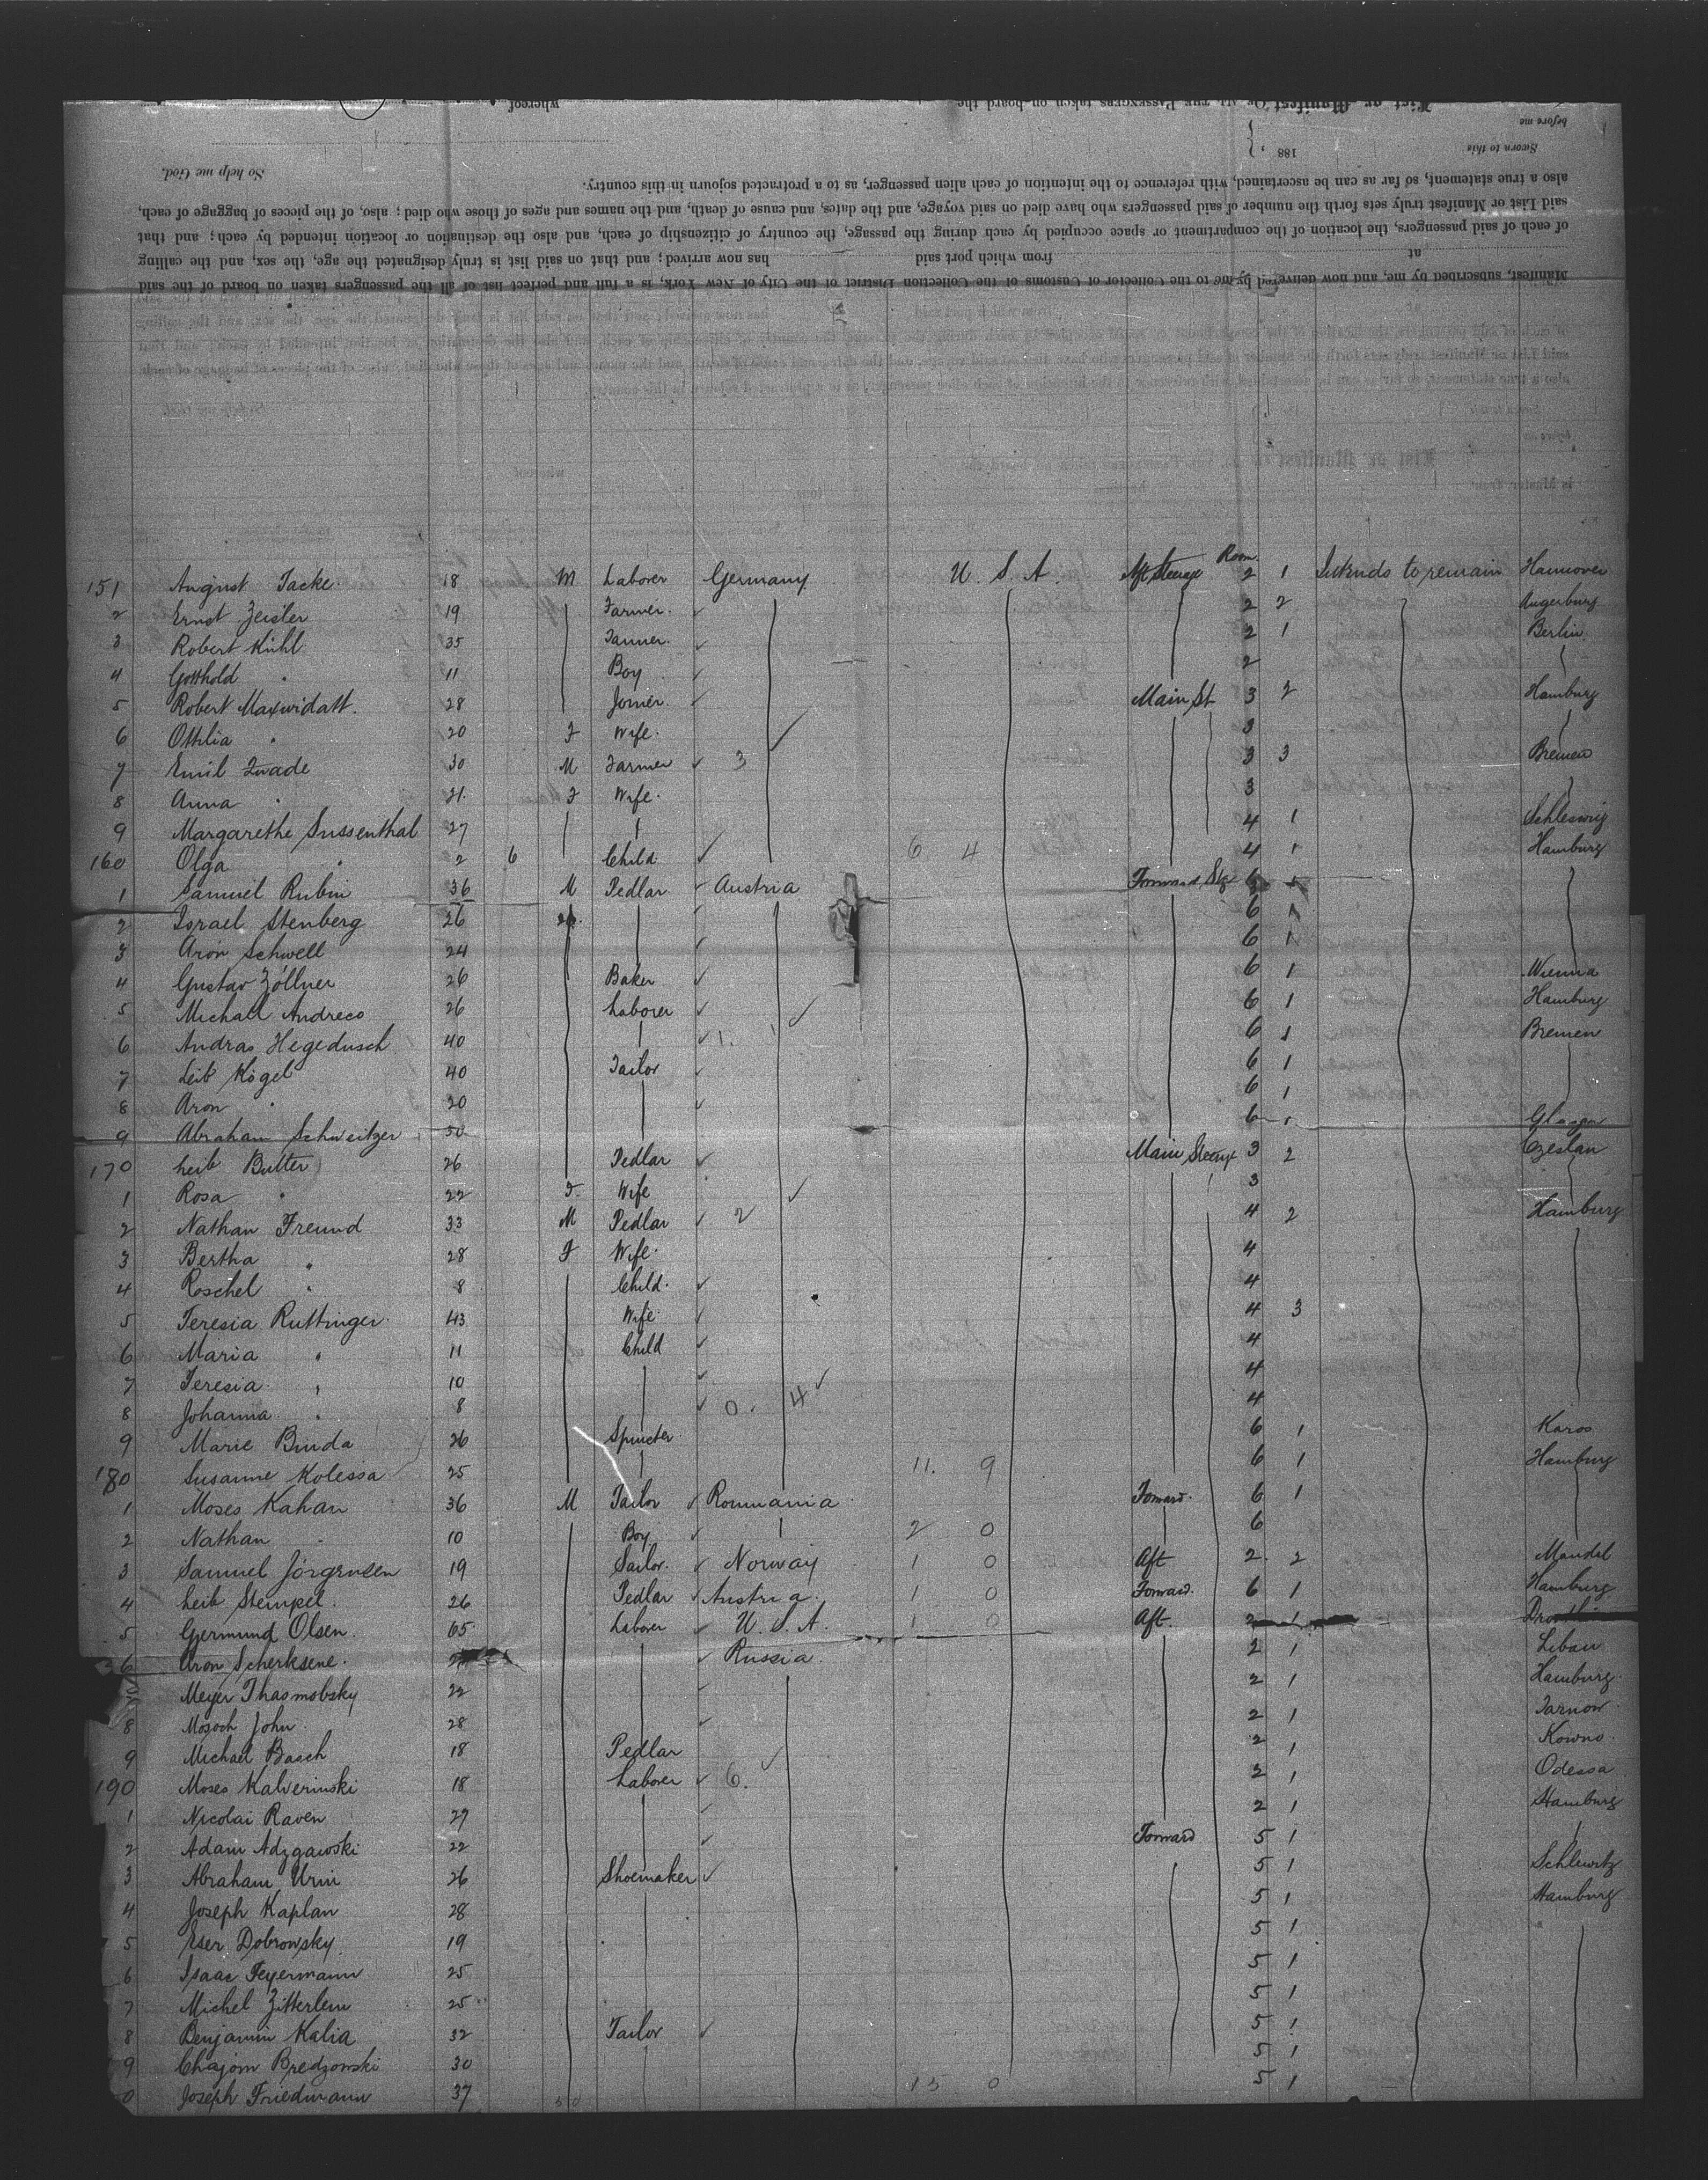 List or Manifest OF ALL THE PASSENGERS taken on board the whereof
before me
Sworn to this 188
So help me God.
also a true statement, so far as can be ascertained, with reference to the intention of each alien passenger, as to a protracted sojourn in this country.
said List or Manifest truly sets forth the number of said passengers who have died on said voyage, and the dates, and cause of death, and the names and ages of those who died; also, of the pieces of baggage of each,
of each of said passengers, the location of the compartment or space occupied by each during the passage, the country of citizenship of each, and also the destination or location intended by each; and that
at from which port said has now arrived; and that on said list is truly designated the age, the sex, and the calling
Manifest, subscribed by me, and now delivered by me to the Collector of Customs of the Collection District of the City of New York, is a full and perfect list of all the passengers taken on board of the said
Room
151 August Jacke 18 M Laborer Germany U. S. A. Aft Steerage 2 1 Intends to remain Hannover
2 Ernst Zeisler 19 Farmer 2 2 Augerburg
3 Robert Kühl 35 Tanner 2 1 Berlin
4 Gotthold " 11 Boy 2
5 Robert Maxwidatt 28 Joiner Main St 3 2 Hamburg
6 Othlia " 20 F Wife 3
7 Emil Zwade 30 M Farmer 3 3 3 Bremen
8 Anna " 21 F Wife 3
9 Margarethe Sussenthal 27 4 1 Schleswig
160 Olga " 2 6 Child 6 4 4 1 Hamburg
1 Samuel Rubin 36 M Pedlar Austria Forward Stg 6
2 Israel Stenberg 26 6 1
3 Aron Schwell 24 6 1
4 Gustav Zöllner 26 Baker 6 1 Wienna
5 Michall Andreco 26 Laborer 6 1 Hamburg
6 Andras Hegedusch 40 6 1 Bremen
7 Leib Kögel 40 Tailor 6 1
8 Aron " 20 6 1
9 Abraham Schweitzer 50 6 1
170 Leib Butter 26 Pedlar Main Steerage 3 2 Czeslau
1 Rosa " 22 F Wife 3
2 Nathan Freund 33 M Pedlar 2 4 2 Hamburg
3 Bertha " 28 F Wife 4
4 Roschel " 8 Child 4
5 Teresia Ruttinger 43 Wife 4 3
6 Maria " 11 Child 4
7 Teresia " 10 4
8 Johanna " 8 0. 4 4
9 Marie Binda 26 Spinster 6 1 Karos
180 Susanne Kolessa 25 11. 9 6 1 Hamburg
1 Moses Kahan 36 M Tailor Roumania Forward 6 1
2 Nathan " 10 Boy 2 0 6
3 Samuel Jörgensen 19 Sailor Norway 1 0 Aft 2 2 Mandel
4 Leib Stempel 26 Pedlar Austria 1 0 Forward 6 1 Hamburg
5 Germund Olsen 65 Laborer U. S. A. 1 0 Aft 2 1
6 Aron Scherksene Russia 2 1 Libau
Meyer Thasmobsky 22 2 1 Hamburg
8 Mosoch John 28 2 1 Tarnow
9 Michael Basch 18 Pedlar 2 1 Kowno
190 Moses Kalverinski 18 Laborer 6. 2 1 Odessa
1 Nicolai Raven 29 2 1 Hamburg
2 Adam Adzgawski 22 Forward 5 1
3 Abraham Urin 26 Shoemaker 5 1 Schlewitz
4 Joseph Kaplan 28 5 1 Hamburg
5 Eser Dobrowsky 19 5 1
6 Isaac Feyermann 25 5 1
7 Michel Zitterlein 25 5 1
8 Benjamin Kalia 32 Tailor 5 1
9 Chajom Bredzowski 30 5 1
0 Joseph Friedmann 37 50 15 0 5 1